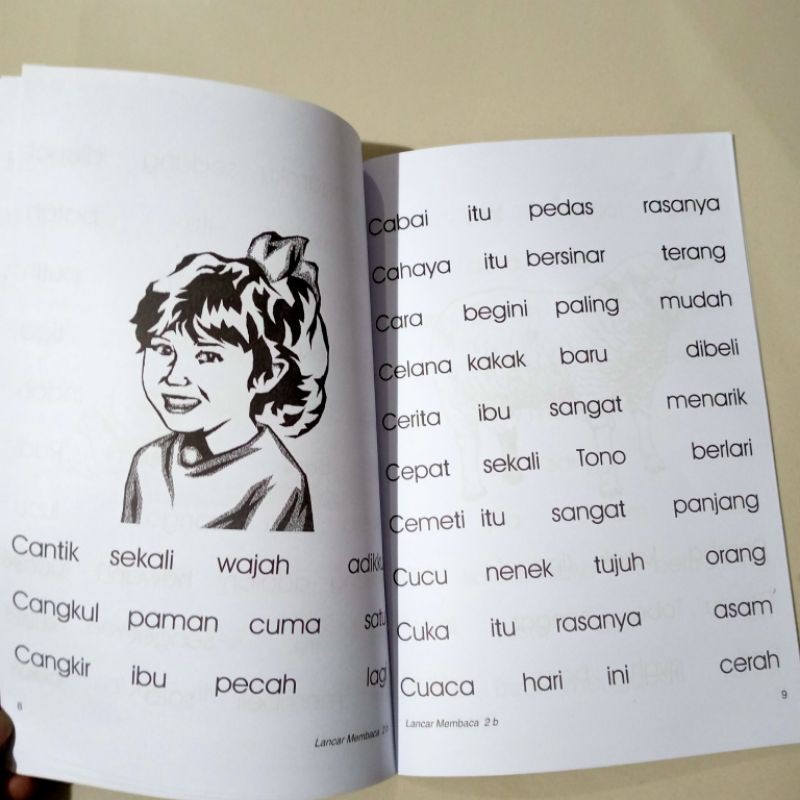 Cantik sekali wajah adikku
Cangkul paman cuma satu
Cangkir ibu pecah lagi
Lancar Membaca 2 b
Cabai itu pedas rasanya
Cahaya itu bersinar terang
Cara begini paling mudah
Celana kakak baru dibeli
Cerita ibu sangat menarik
Cepat sekali Tono berlari
Cemeti itu sangat panjang
Cucu nenek tujuh orang
Cuka itu rasanya asam
Cuaca hari ini cerah
Lancar Membaca 2 b
9